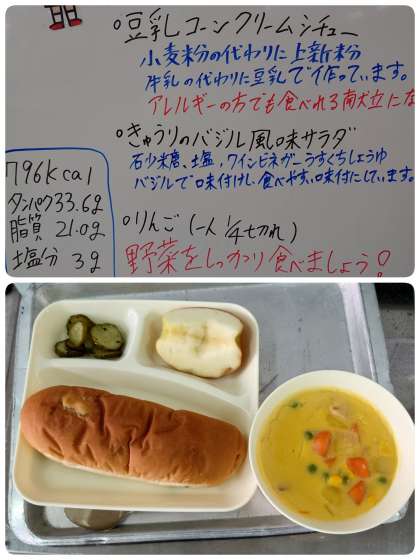 ○豆乳コーンクリームシチュー
小麦粉の代わりに上新粉
牛乳の代わりに豆乳で作っています。
アレルギーの方でも食べれる献立にな
○きゅうりのバジル風味サラダ
砂糖、塩、ワインビネガーうすくちしょうゆ
バジルで味付けし、食べやすい味付にしています。
○りんご(一人1/4切れ)
野菜をしっかり食べましょう!
796kcal
タンパク33.6g
脂質 21.0g
塩分 3g